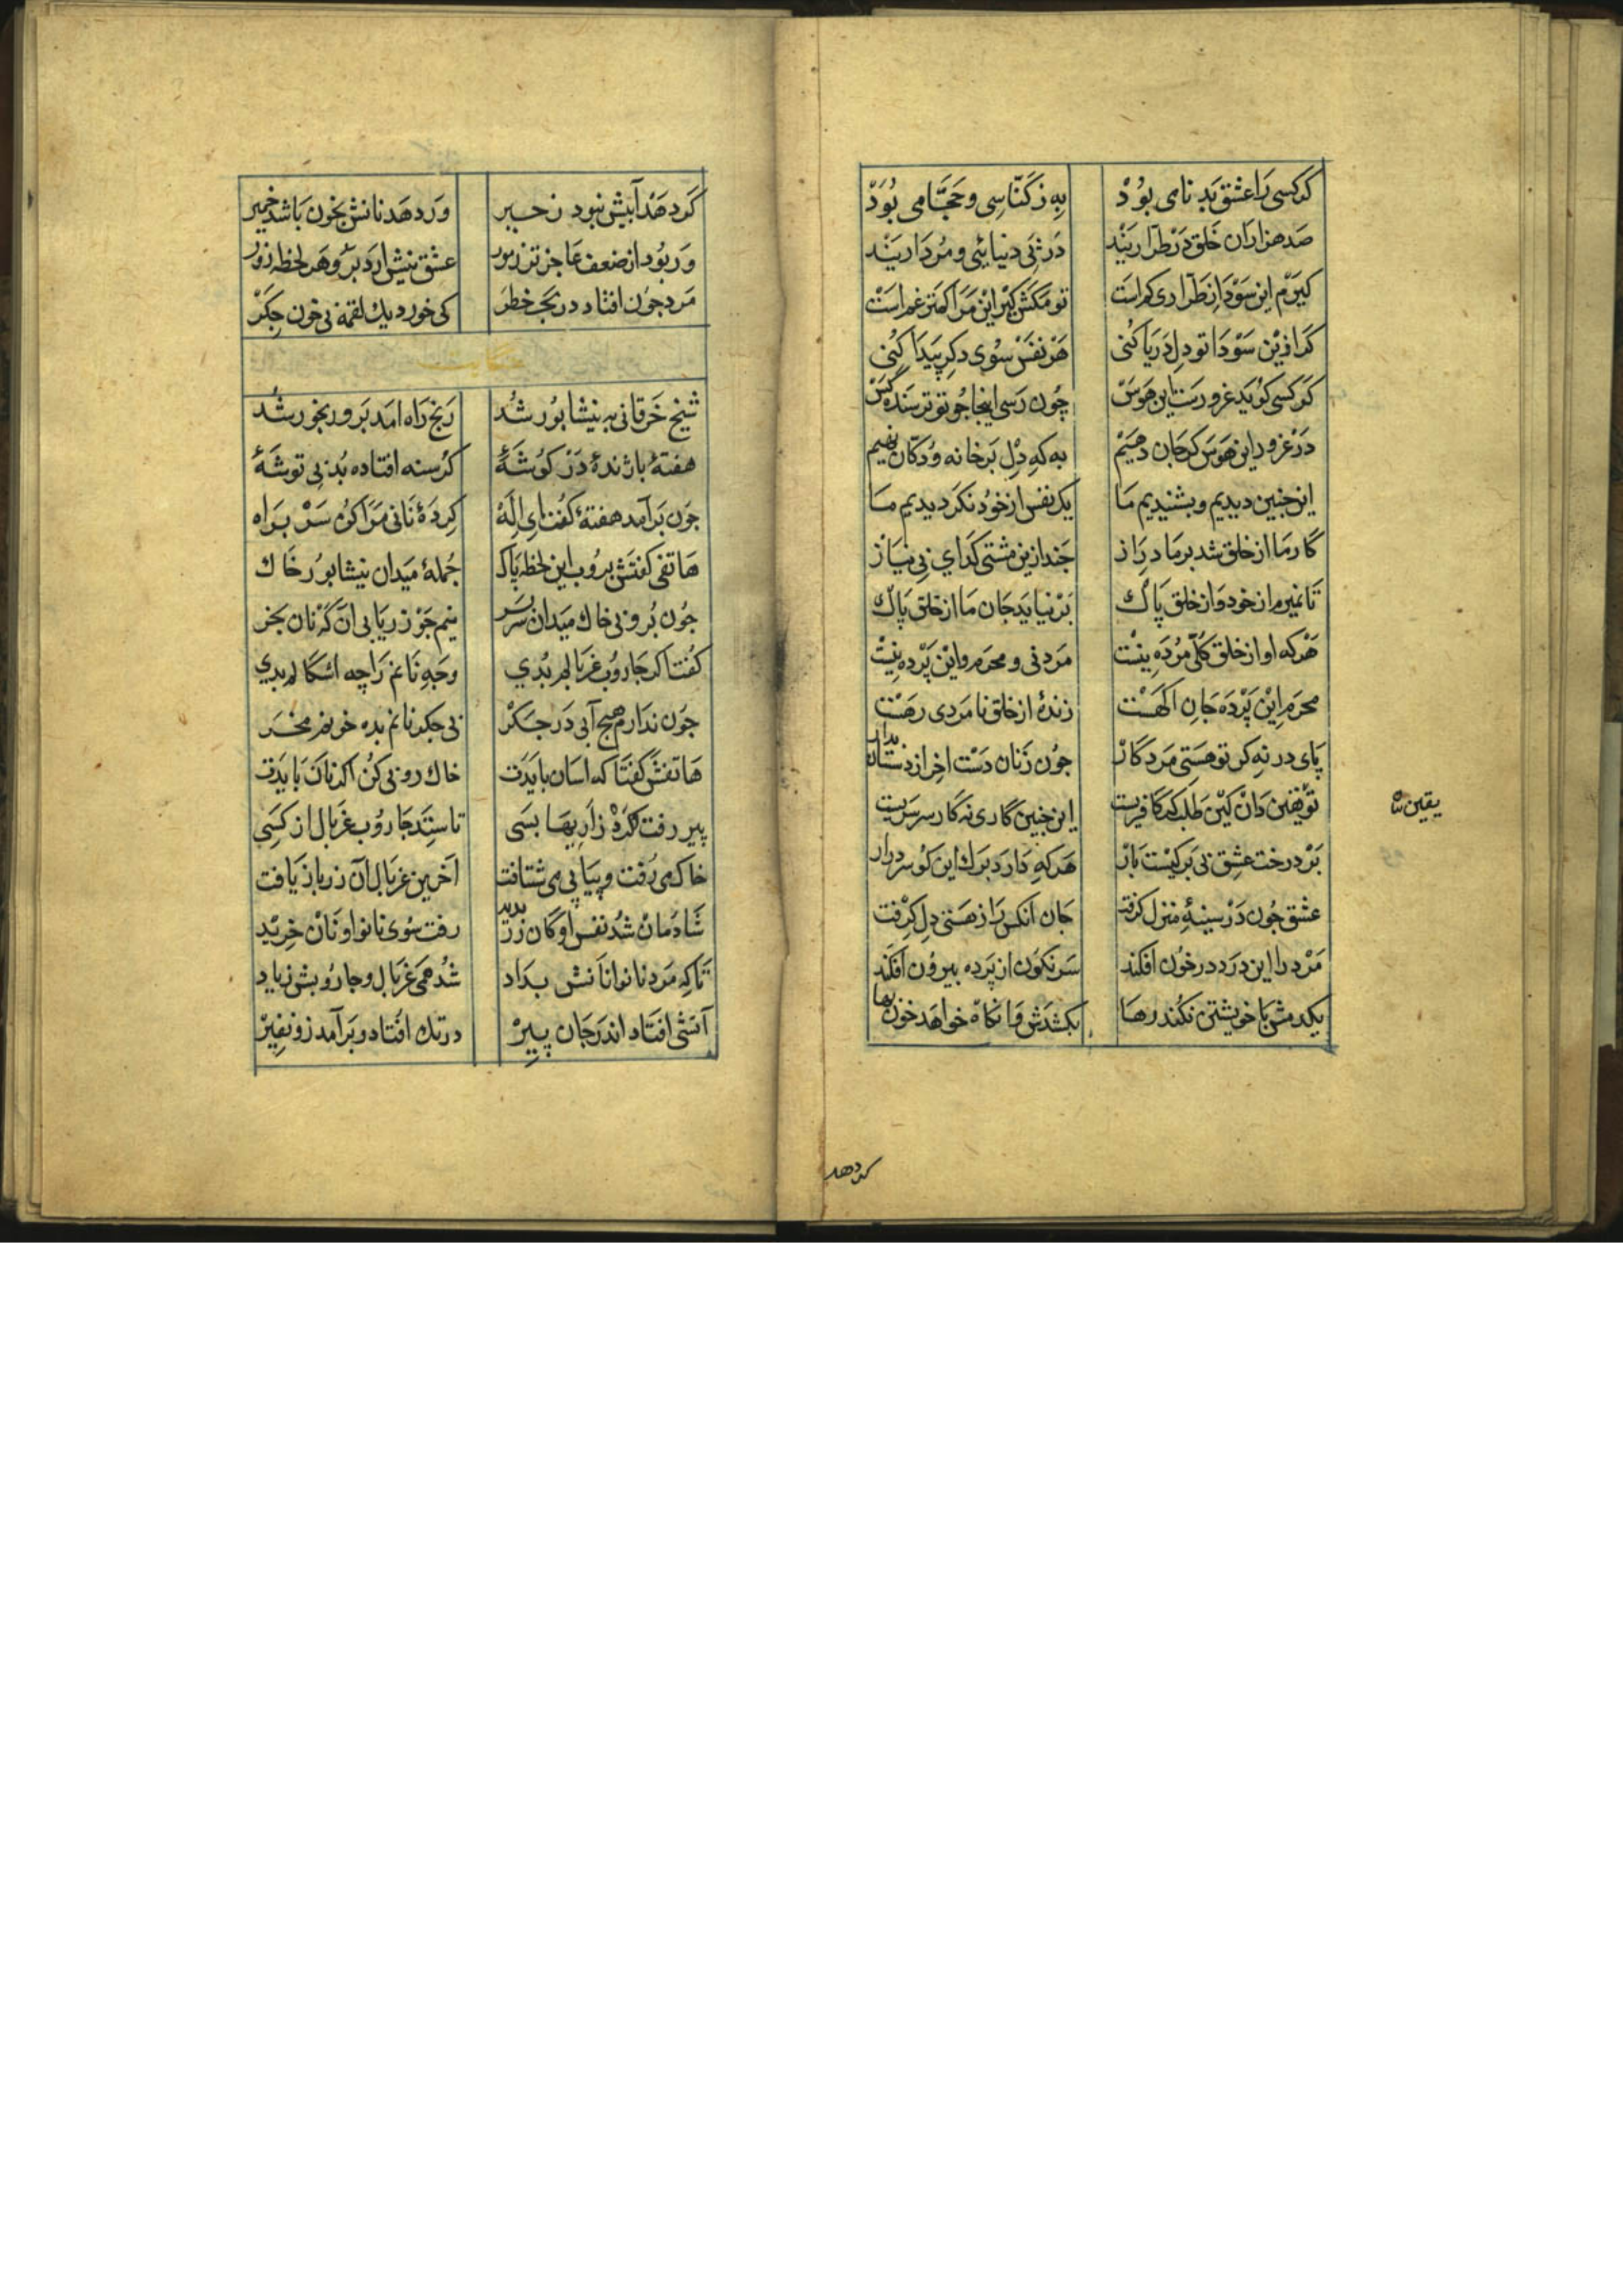 کر کسی را عشق بد نامی بود به ز کناسی و حجامی بود
صد هزاران خلق در طراریند در پی دنیایی و مرداریند
کیرم این سودا ز طراری کم است تو مکش کیر این مرا کمتر غم است
کر ازین سودا تو دل دریا کنی هر نفس سوی دکر پیدا کنی
کر کسی کوید غرورست این هوس چون رسی اینجا جو تو نرسنده کس
در غرور این هوس کر جان دهیم به که دل بر خانه و دکان نهیم
این جنین دیدیم و بشنیدیم ما یک نفس از خود نکردیدیم ما
کار ما از خلق شد بر ما دراز جند ازین مشتی کدای بی نیاز
تا نمیرم از خود و از خلق پاک بر نیاید جان ما از خلق پاک
هر که او از خلق کلی مرده نیست مرد نی و محرم و این پرده نیست
محرم این پرده جان اکهست زندهٔ از خلق نا مردی رهست
پای در نه کر تو هستی مرد کار جون زنان دست اخر از دستان بدار
تو یقین دان کین طلب کر کافریست این جنین کاری نه کار سرسریست
یقین
بر درخت عشق بی برکیست بار هر که دارد برک این کو سر در ار
عشق جون در سینهٔ منزل کرفت جان آنکس را ز هستی دل کرفت
مرد را این درد در خون افکند سر نکون از پرده بیرون افکند
یکدمش با خویشتن نکند رها بکشدش وانکاه خواهد خون بها
کر دهد
کر دهد آبیش نبود ز حیر ور دهد نانش بخون باشد خمیر
ور بود از ضعف عاجز تر ز مور عشق بیش ارد بر و هر لحظه زور
مرد جون افتاد در بحر خطر کی خورد یک لقمه بی خون جکر
حکایت
شیخ خرقانی به نیشابور شد رنج راه امد برو رنجور شد
هفتهٔ با ژندهٔ در کوشهٔ کرسنه افتاده بد بی توشهٔ
جون بر آمد هفتهٔ کفت ای اله کردهٔ نانی مرا کن سر براه
هاتفی کفتش بروب این لحظه پاک جملهٔ میدان نیشابور خاک
جون بروبی خاک میدان سر بسر نیم جو زر یابی آن که نان بخر
کفتا کر جاروب غربالم بدی وجه نانم را چه اشکالم بدی
جون ندارم هیج آبی در جکر بی جکر نانم بده خونم مخور
هاتفش کفتا که اسان بایدت خاک روبی کن اکر نان بایدت
پیر رفت کرد زاریها بسی تا ستد جاروب غربال از کسی
خاک می رفت و پیاپی می شتافت آخرین غربال آن زر باز یافت
شادمان شد نفس او کان زر بدید رفت سوی نانوا و نان خرید
تا که مرد نانوا نانش بداد شد همی غربال و جاروبش زیاد
آتشی افتاد اندر جان پیر در تک افتاد و بر آمد زو نفیر